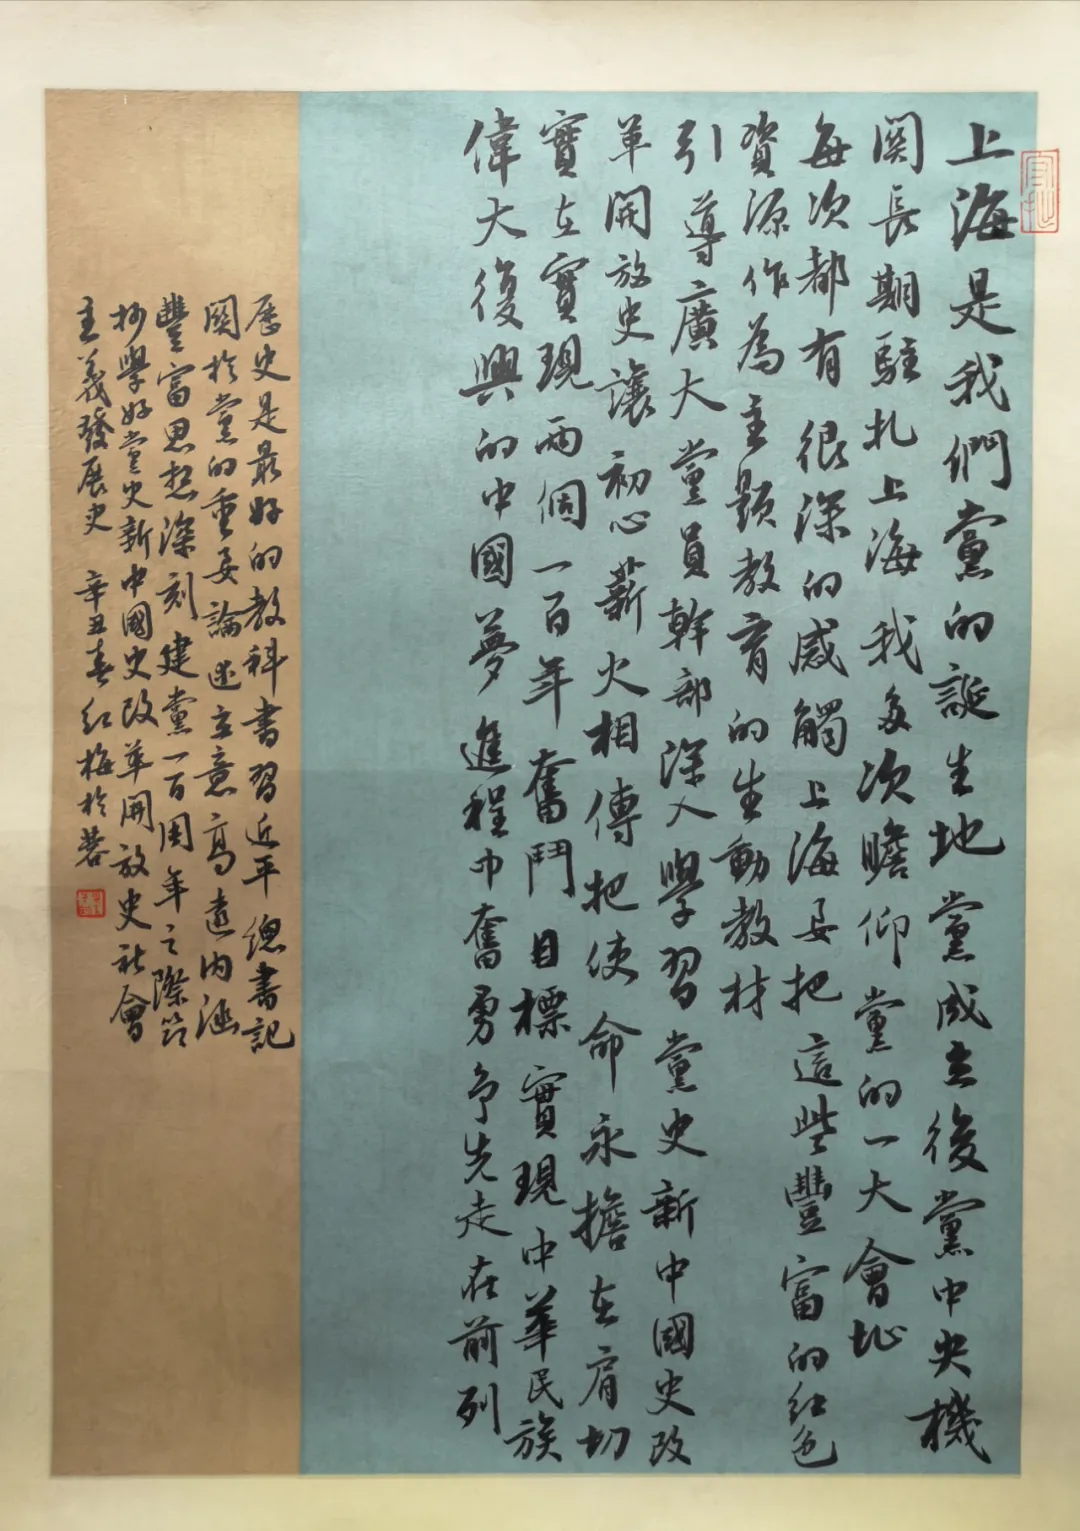 上海是我們黨的誕生地黨成立後黨中央機
関長期駐扎上海我多次瞻仰黨的一大會址
每次都有很深的感觸上海要把這些豐富的紅色
資源作為主題教育的生動教材
引導廣大黨員幹部深入學習黨史新中國史改
革開放史讓初心薪火相傳把使命永擔在肩切
實在實現兩個一百年奮鬥目標實現中華民族
偉大復興的中國夢進程中奮勇争先走在前列
歷史是最好的教科書習近平總書記
関於黨的重要論述立意高遠内涵
豐富思想深刻建黨一百周年之際節
抄學好黨史新中國史改革開放史社會
主義發展史 辛丑春紅梅於蓉